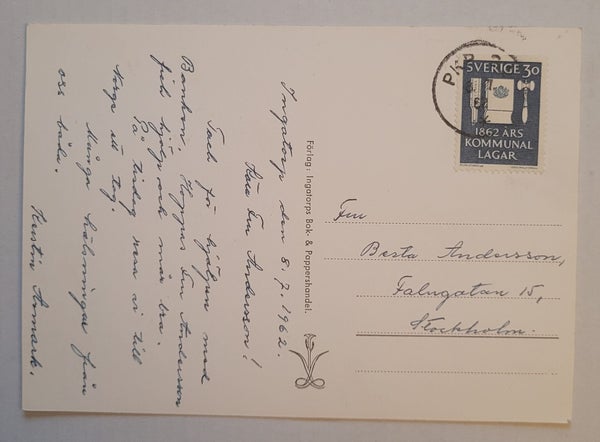 Ingatorp den 8.7.1962.
Kära Fru Andersson!
Tack för hjälpen med
Bomben. Hoppas Fru Andersson
fick hjälp och mår bra.
På tisdag resa vi till
Norge ett tag.
Många hälsningar från
oss båda.
Kerstin Armark.
Förlag: Ingatorps Bok & Pappershandel.
PKP
SVERIGE 30
1862 ÅRS
KOMMUNAL
LAGAR
Fru
Berta Andersson,
Falugatan 15,
Stockholm.